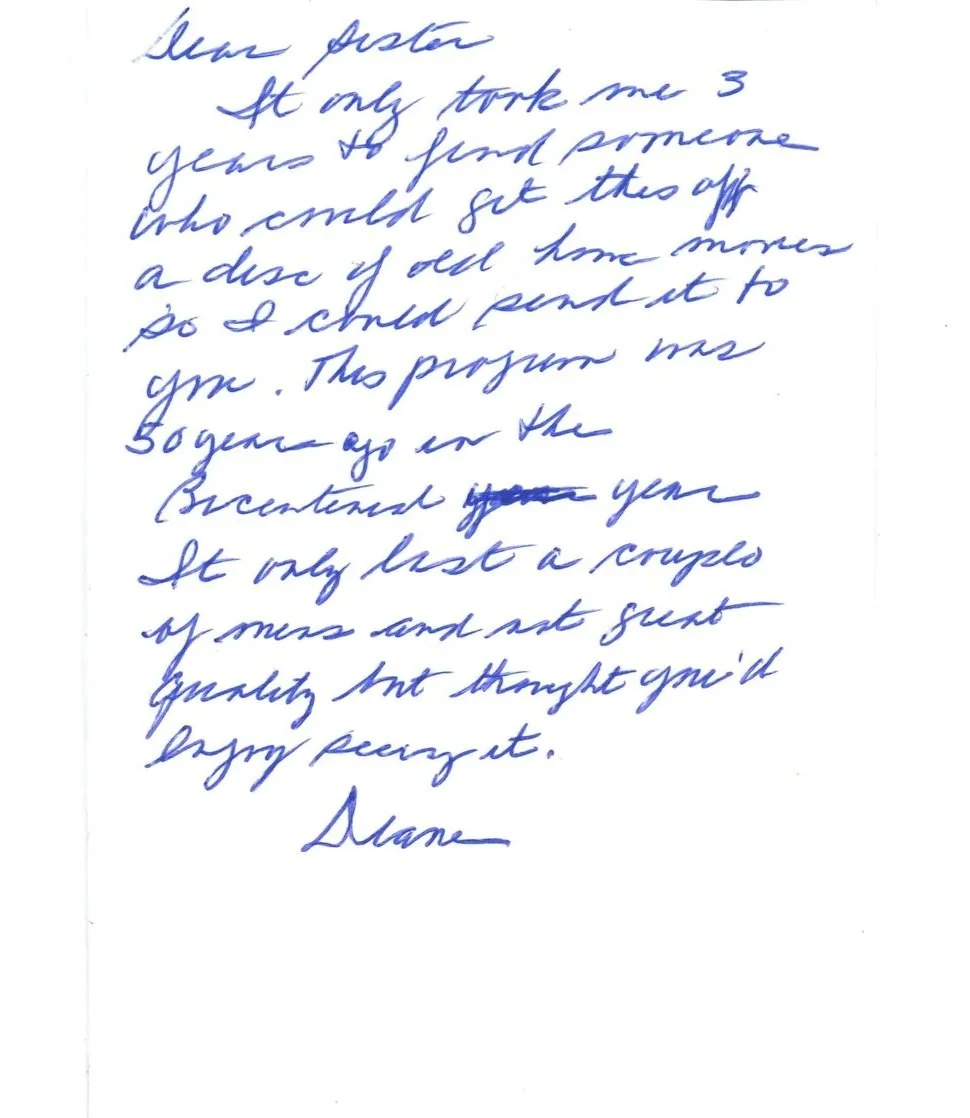 Dear Sister
It only took me 3
years to find someone
who could get this off
a disc of old home movies
so I could send it to
you. This program was
50 years ago in the
Bicentenial year
It only last a couple
of mins and not great
quality but thought you'd
enjoy seeing it.
Diane